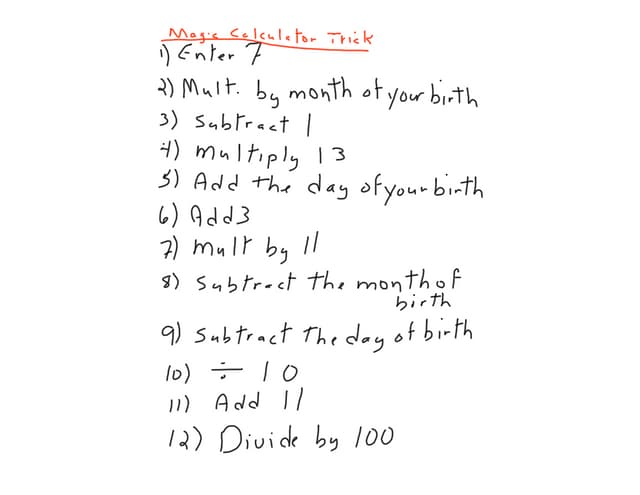 Magic Calculator Trick
1) Enter 7
2) Mult. by month of your birth
3) Subtract 1
4) multiply 13
5) Add the day of your birth
6) Add 3
7) mult by 11
8) Subtract the month of
birth
9) Subtract the day of birth
10) ÷ 10
11) Add 11
12) Divide by 100